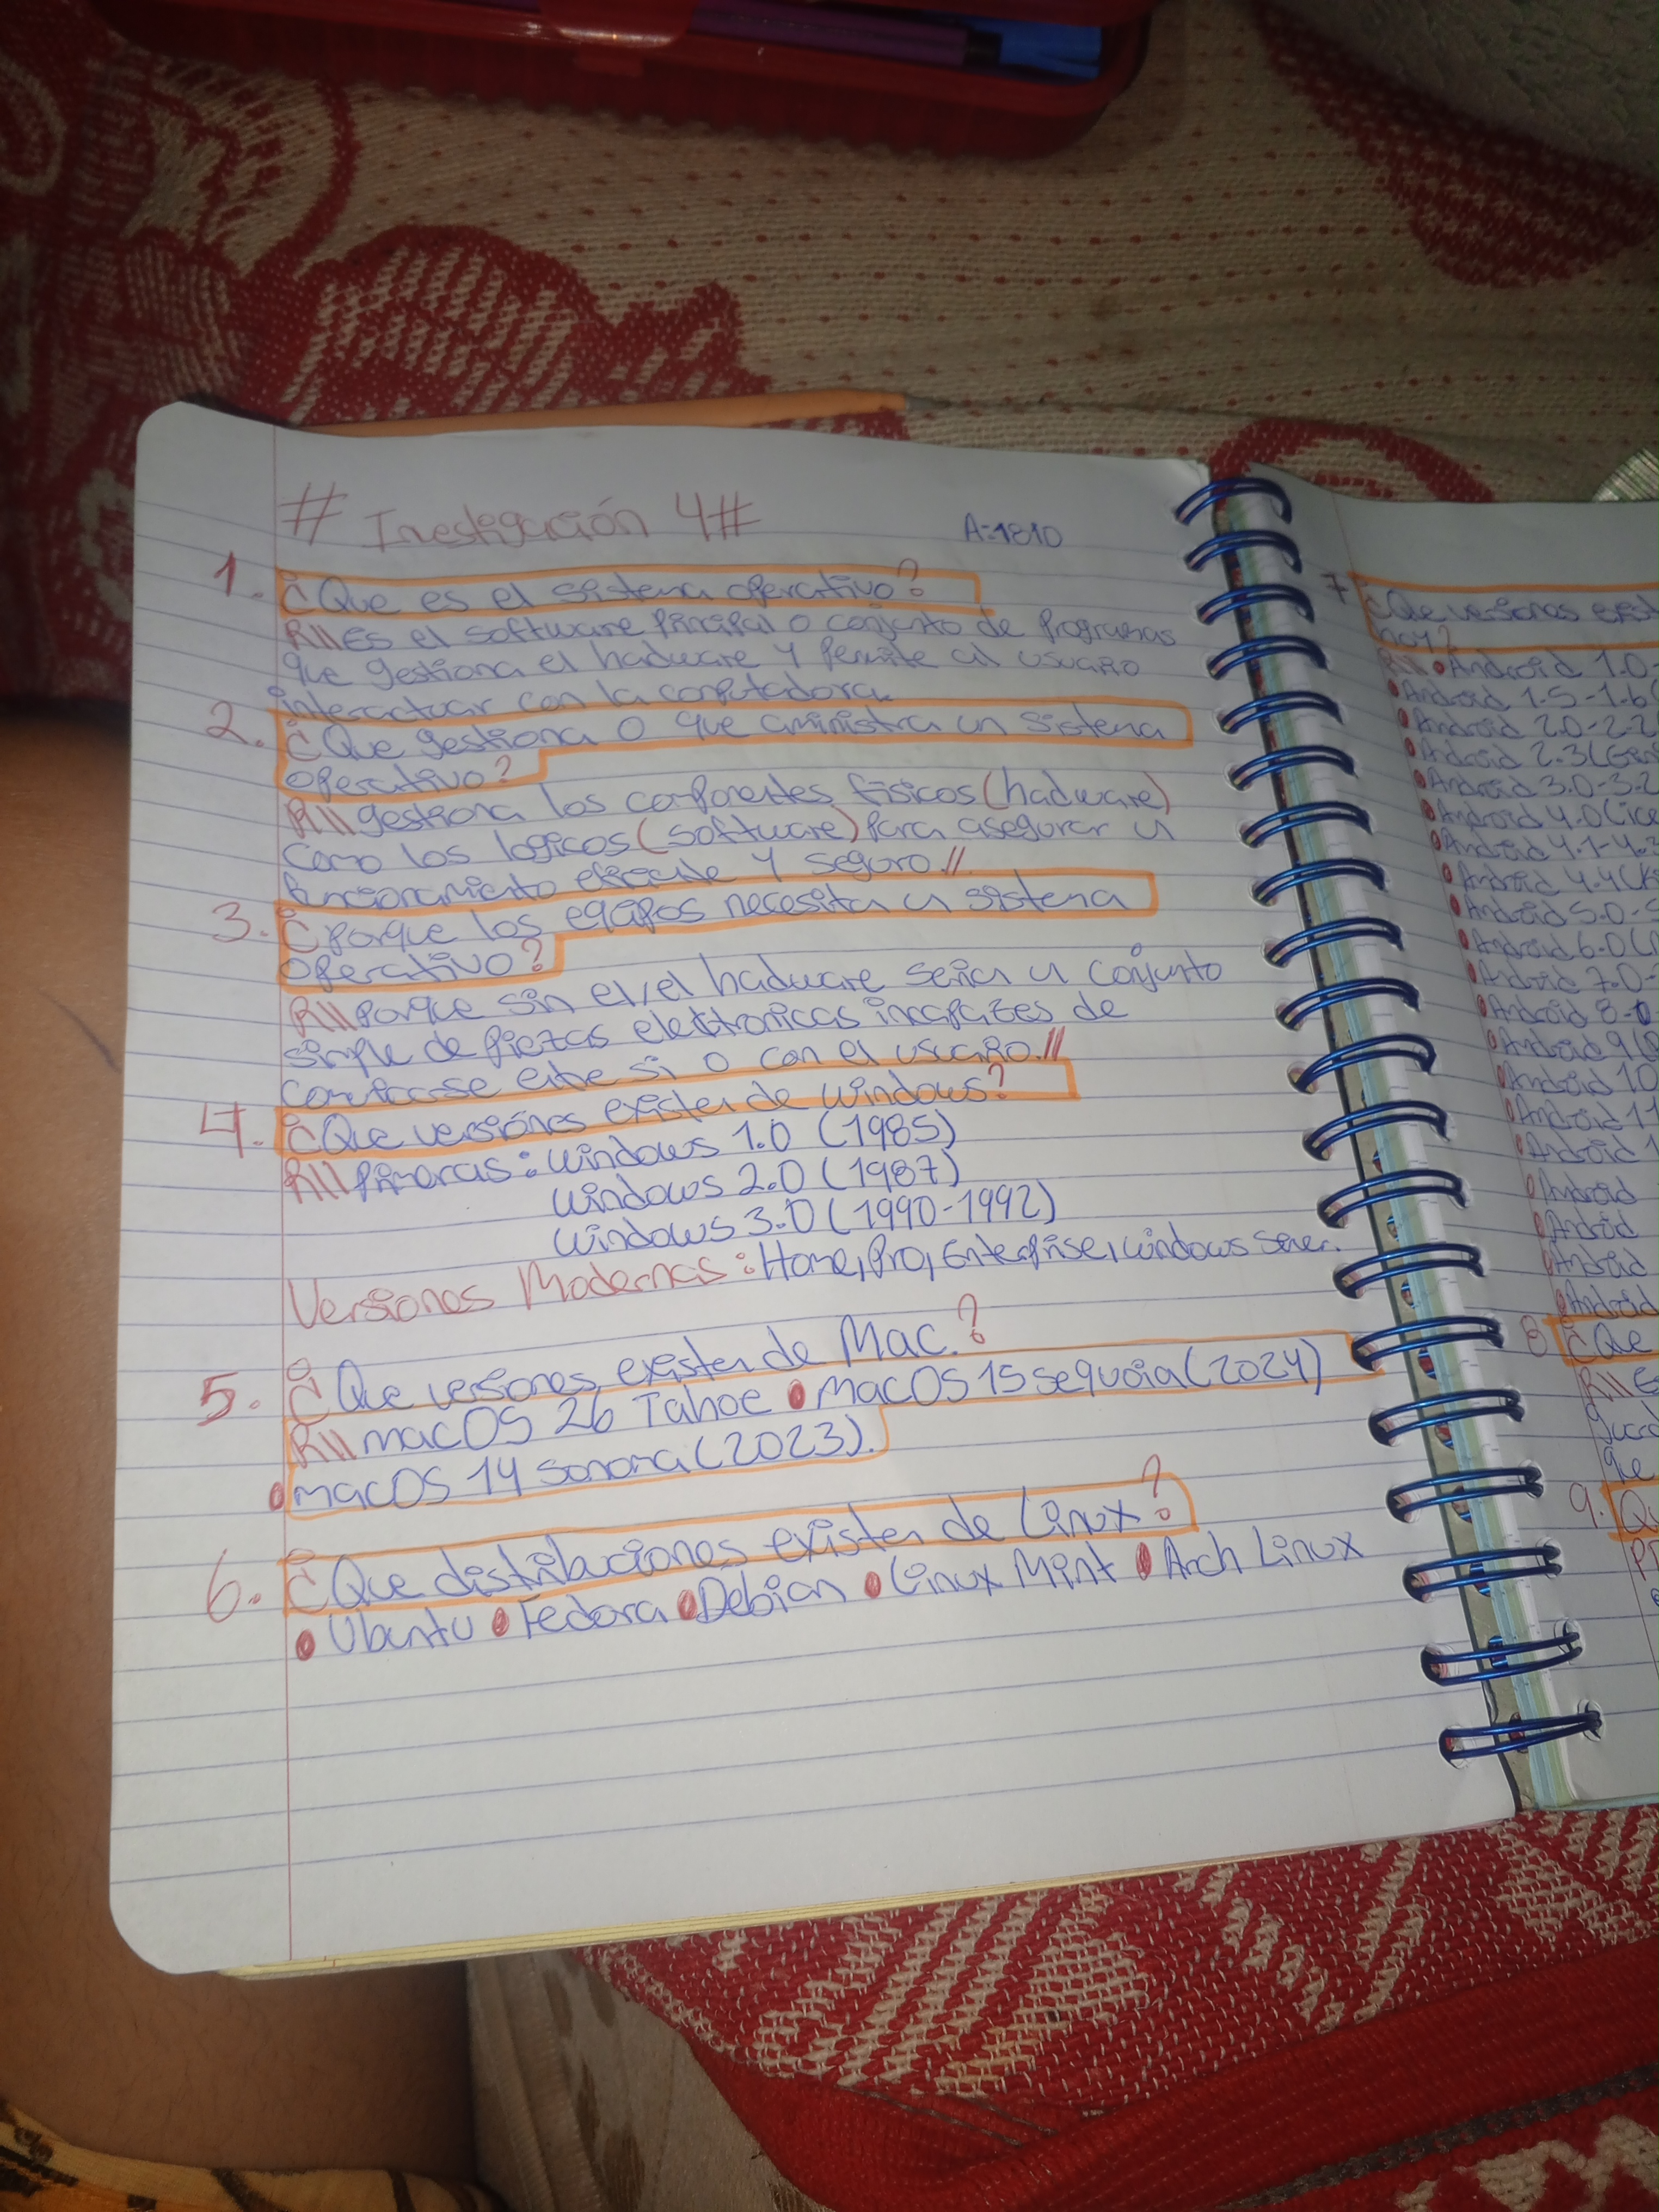 # Inestigación 4#
A:1810
1. ¿Que es el sistema operativo?
R// Es el software Pinsipal o conjunto de Programas
que gestiona el hadware y Permite al usuario
interactuar con la computadora.
2. ¿Que gestiona o que aministra un sistema
operativo?
R// gestiona los componentes físicos (hadware)
como los logicos (software) Para asegurar un
funcionamiento eficiente y seguro.//
3. ¿Porque los equipos necesitan un sistema
operativo?
R// Porque sin el, el hadware seria un conjunto
simple de piezas elektronicas incapazes de
comunicarse entre si o con el usuario.//
4. ¿Que versiónes existen de windows?
R// Pimeras: windows 1.0 (1985)
windows 2.0 (1987)
windows 3.0 (1990-1992)
Versiones Modernas: Home, Pro, Enterprise, windows Server.
5. ¿Que versiones existen de Mac.?
R// macOS 26 Tahoe • MacOS 15 sequoia (2024)
• macOS 14 sonoma (2023).
6. ¿Que distribuciones existen de Linux?
• Ubuntu • Fedora • Debian • Linux Mint • Arch Linux
7 ¿Que versiones exist
hay?
R// • Android 1.0-
• Android 1.5-1.6 (
• Android 2.0-2.2
• Android 2.3 (Gin
• Android 3.0-3.2
• Android 4.0 (ice
• Android 4.1-4.3
• Android 4.4 (K
• Android 5.0-5
• Android 6.0 (
• Android 7.0-
• Android 8.0
• Android 9 (
• Android 10
• Android 11
• Android 1
• Android
• Android
• Android
• Android
8 ¿Que
R// E
que
9. Qu